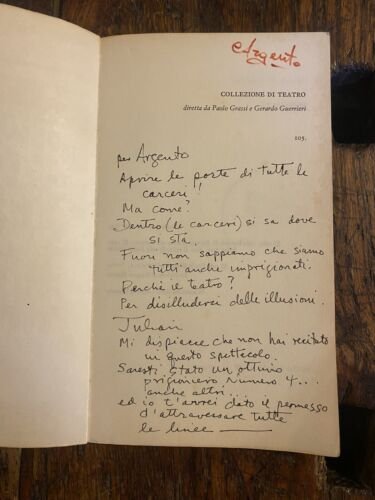 Argento
COLLEZIONE DI TEATRO
diretta da Paolo Grassi e Gerardo Guerrieri
105.
per Argento
Aprire le porte di tutte le
carceri!
Ma come?
Dentro (le carceri) si sa dove
si sta.
Fuori non sappiamo che siamo
tutti anche imprigionati.
Perchè il teatro?
Per disilluderci delle illusioni.
Julian
Mi dispiacce che non hai recitato
in questo spettacolo.
Saresti stato un ottimo
prigioniero numero 4...
anche altri...
ed io t'avrei dato il permesso
d'attraversare tutte
le linee